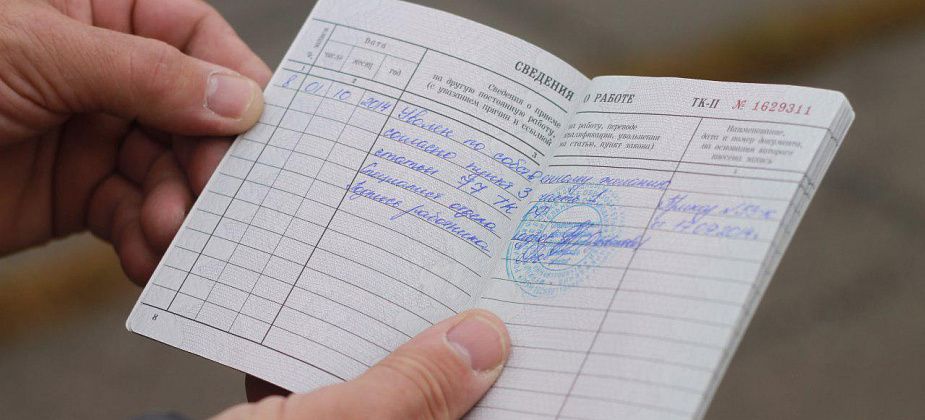 СВЕДЕНИЯ О РАБОТЕ ТК-II № 1629311
№ записи
Дата
число месяц год
Сведения о приеме
на другую постоянную работу,
(с указанием причин и ссылкой
на работу, переводе
квалификации, увольнении
на статью, пункт закона)
Наименование,
дата и номер документа,
на основании которого
внесена запись
1 2 3 4
8 01 10 2014 Уволен по собственному желанию
согласно пункта 3 часть 1
статьи 77 ТК РФ.
Специалист отдела
Подпись работника
Приказ № 53-к
от 17.09.2014г
8